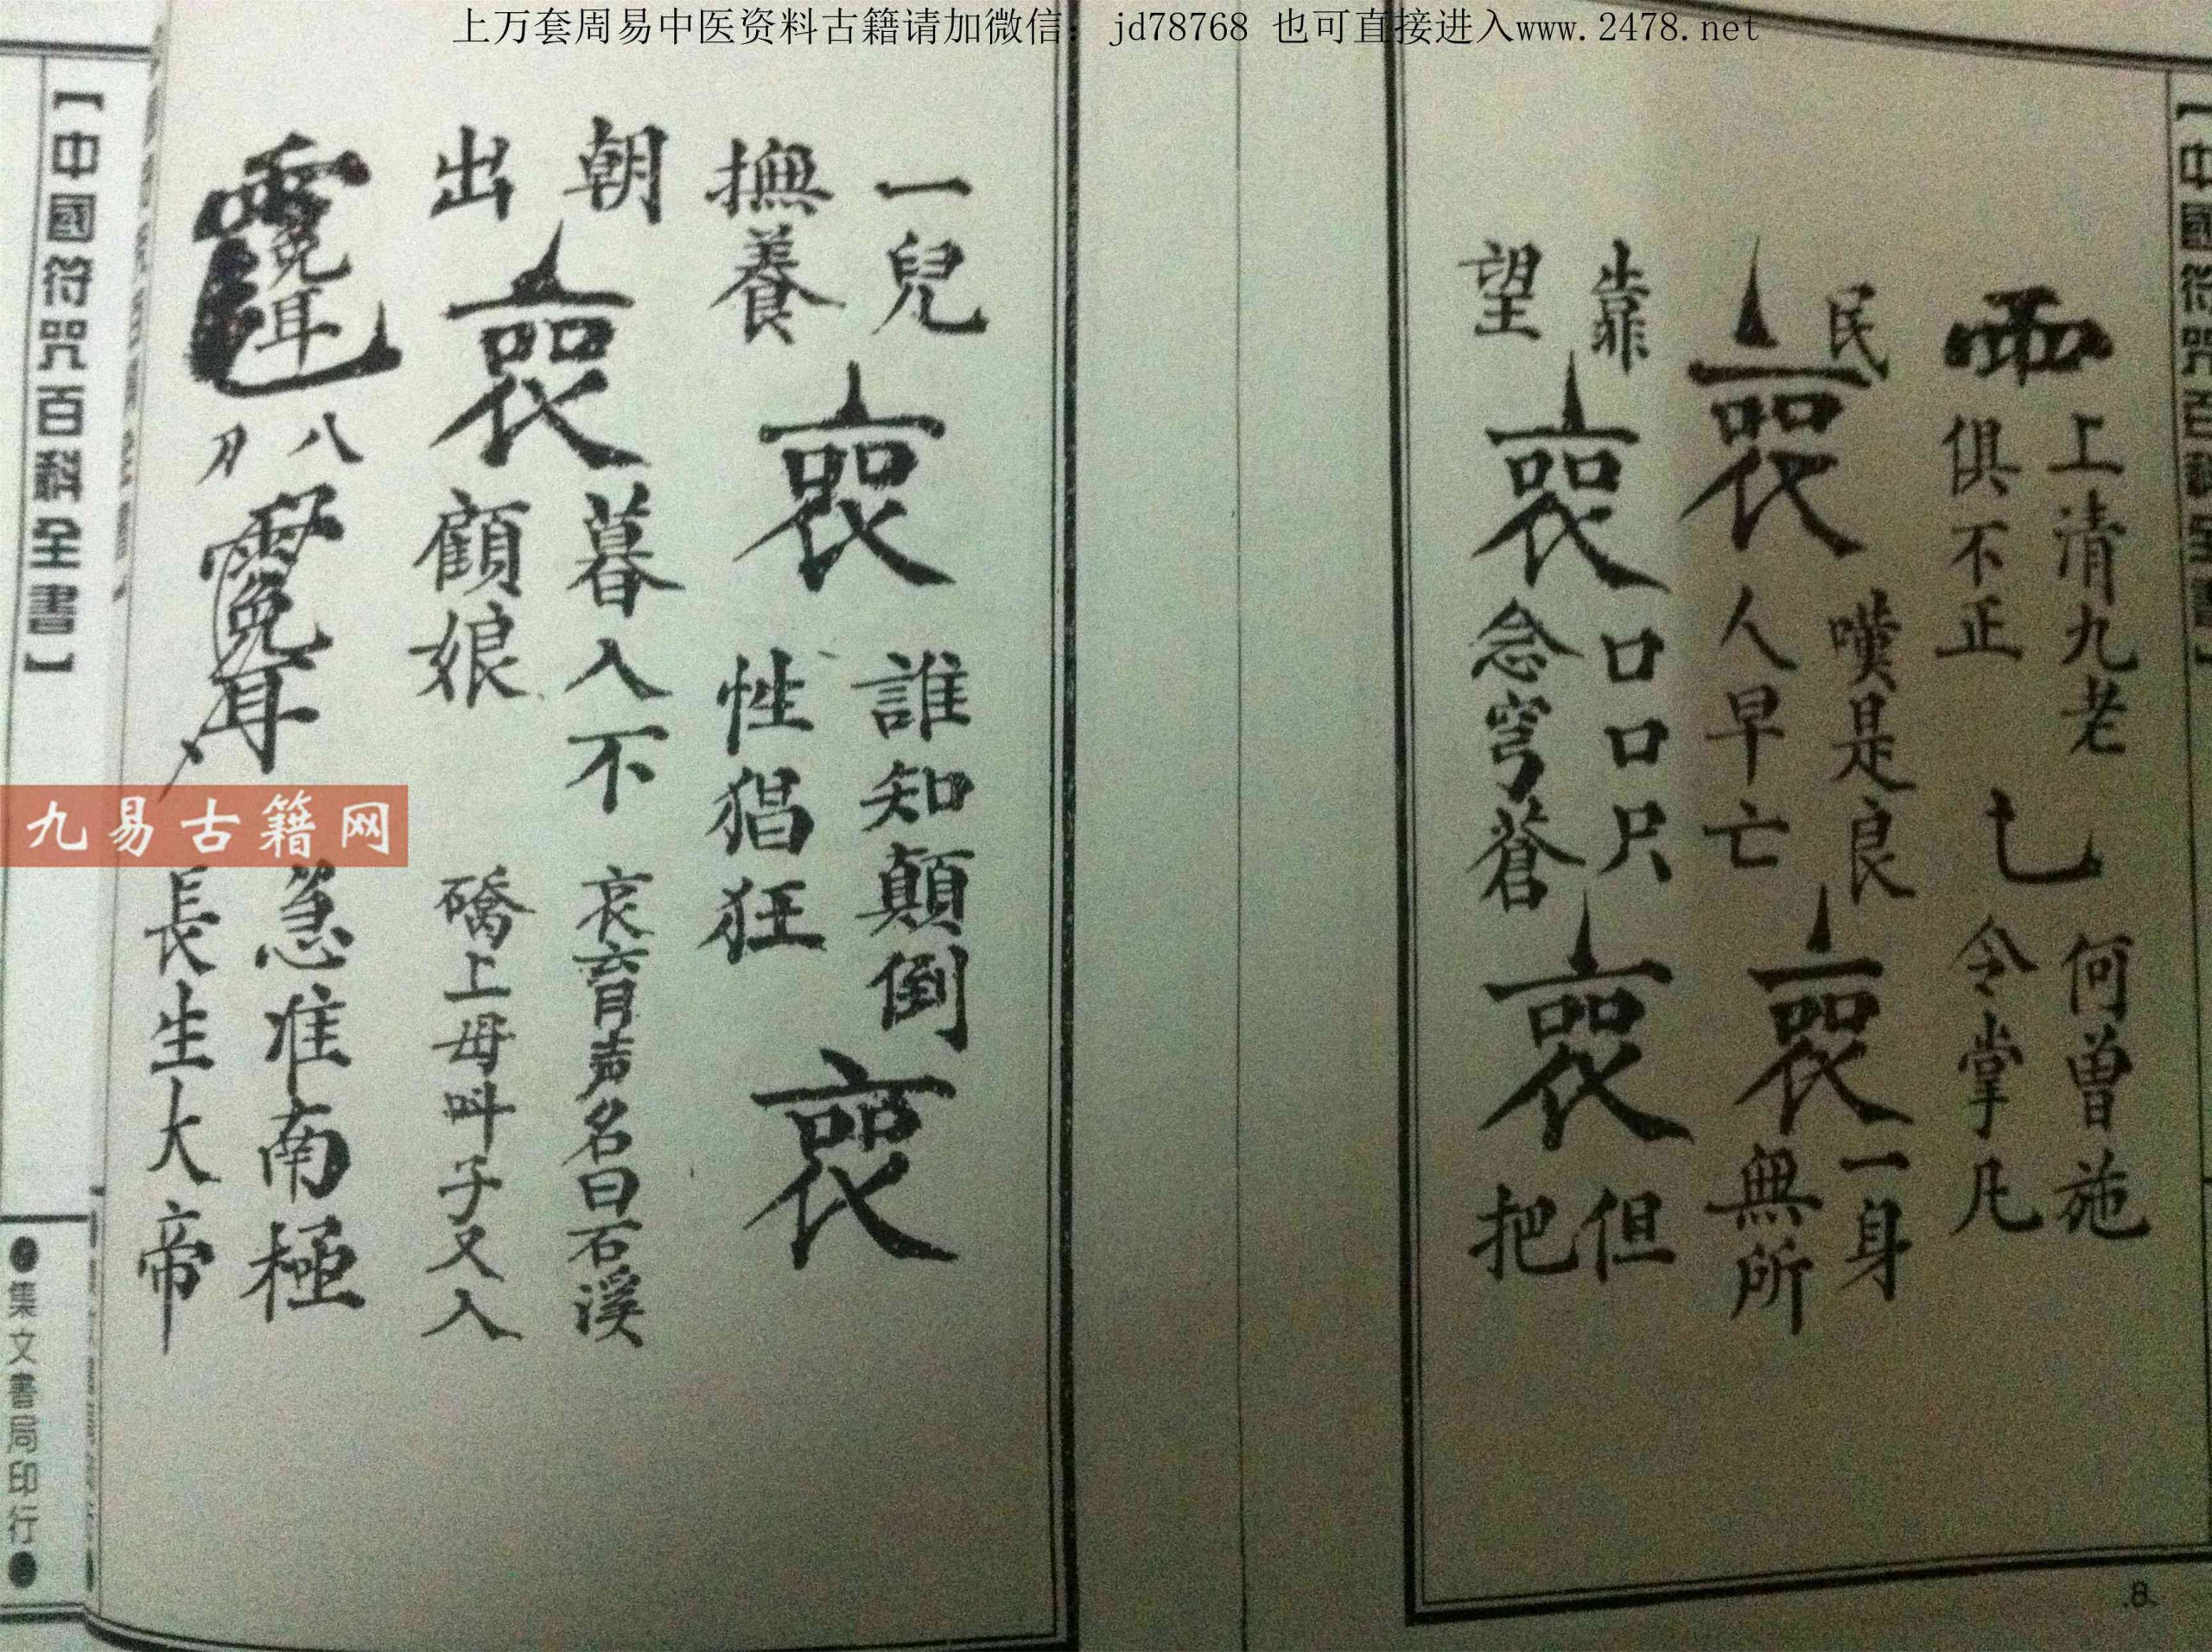 上万套周易中医资料古籍请加微信：jd78768 也可直接进入www.2478.net
【中國符咒百科全書】
上清九老
俱不正
何曾施
令掌凡
民
嘆是良
人早亡
一身
無所
靠
望
口口只
念穹蒼
但
把
.8.
一兒
撫養
誰知顛倒
性猖狂
朝
出
暮入不
顧娘
哀育声名曰石溪
礄上母叫子又入
八
刀
急准南極
長生大帝
【中國符咒百科全書】
●集文書局印行●
九易古籍网